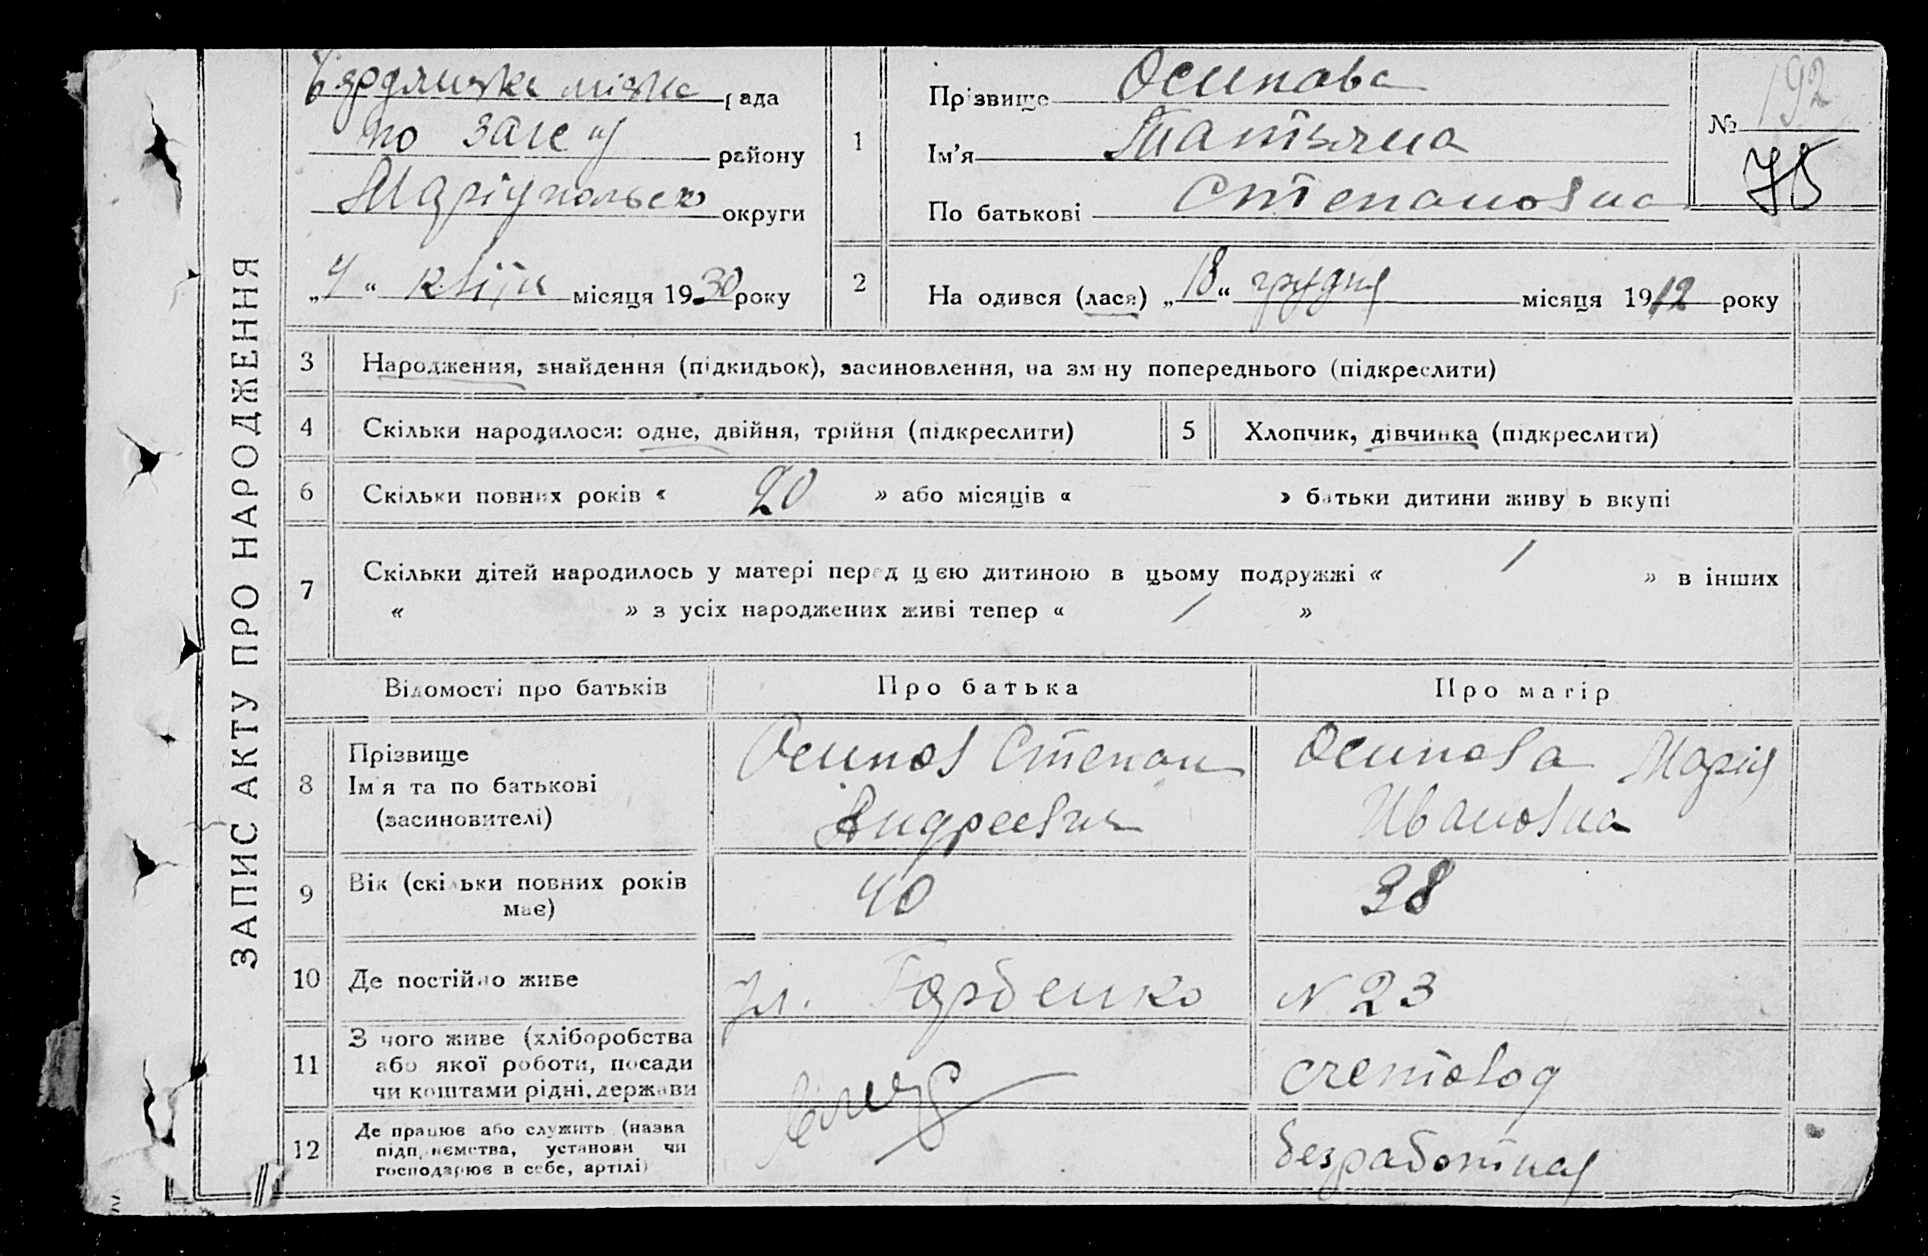 ЗАПИС АКТУ ПРО НАРОДЖЕННЯ
Бердянська міська рада
по загс'у району
Маріупольск округи
„4“ квітн місяця 1930 року
1
Прізвище Осипова
Ім'я Татьяна
По батькові Степановна
№ 192
75
2
На одився (лася) „18“ грудня місяця 1912 року
3 Народження, знайдення (підкидьок), засиновлення, на зм ну попереднього (підкреслити)
4 Скільки народилося: одне, двійня, трійня (підкреслити) 5 Хлопчик, дівчинка (підкреслити)
6 Скільки повних років « 20 » або місяців « » батьки дитини живу ь вкупі
7 Скільки дітей народилось у матері перед цією дитиною в цьому подружжі « 1 » в інших
« » з усіх народжених живі тепер « 1 »
Відомості про батьків Про батька Про матір
8 Прізвище
Ім'я та по батькові
(засиновителі)
Осипов Степан
Андреевич
Осипова Марія
Ивановна
9 Вік (скільки повних років
має)
40
38
10 Де постійно живе
ул. Горбенко
N 23
11 З чого живе (хліборобства
або якої роботи, посади
чи коштами рідні, держави
счетовод
12 Де працює або служить (назва
підприємства, установи чи
господарює в себе, артілі)
безработная